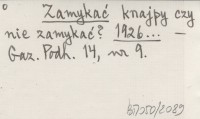 Zamykać knajpy czy
nie zamykać? 1926... —
Gaz. Podh. 14, nr 9.